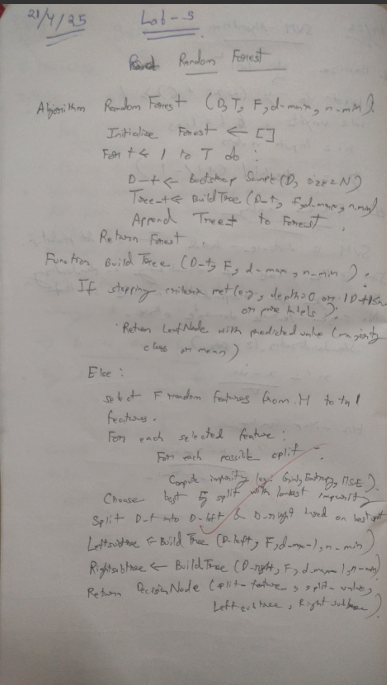 21/4/25 Lab-5
Random Forest
Algorithm Random Forest (D, T, F, d-max, n-min).
Initialize Forest ← []
For t ← 1 to T do :
D-t ← Bootstrap Sample (D, size = N)
Tree-t ← Build Tree (D-t, F, d-max, n-min)
Append Tree-t to Forest.
Return Forest
Function Build Tree (D-t, F, d-max, n-min).
If stopping criteria met (e.g., depth=0 or |D-t|<n
or pure labels).
Return LeafNode with predicted value (majority
class or mean)
Else :
select F random features from M total
features.
For each selected feature :
For each possible split -.
Compute impurity (e.g. Gini, Entropy, MSE).
Choose best split with lowest impurity
Split D-t into D-left & D-right based on best split
Leftsubtree ← Build Tree (D-left, F, d-max-1, n-min)
Rightsubtree ← Build Tree (D-right, F, d-max-1, n-min)
Return DecisionNode (split-feature, split-value,
Left subtree, Right subtree)